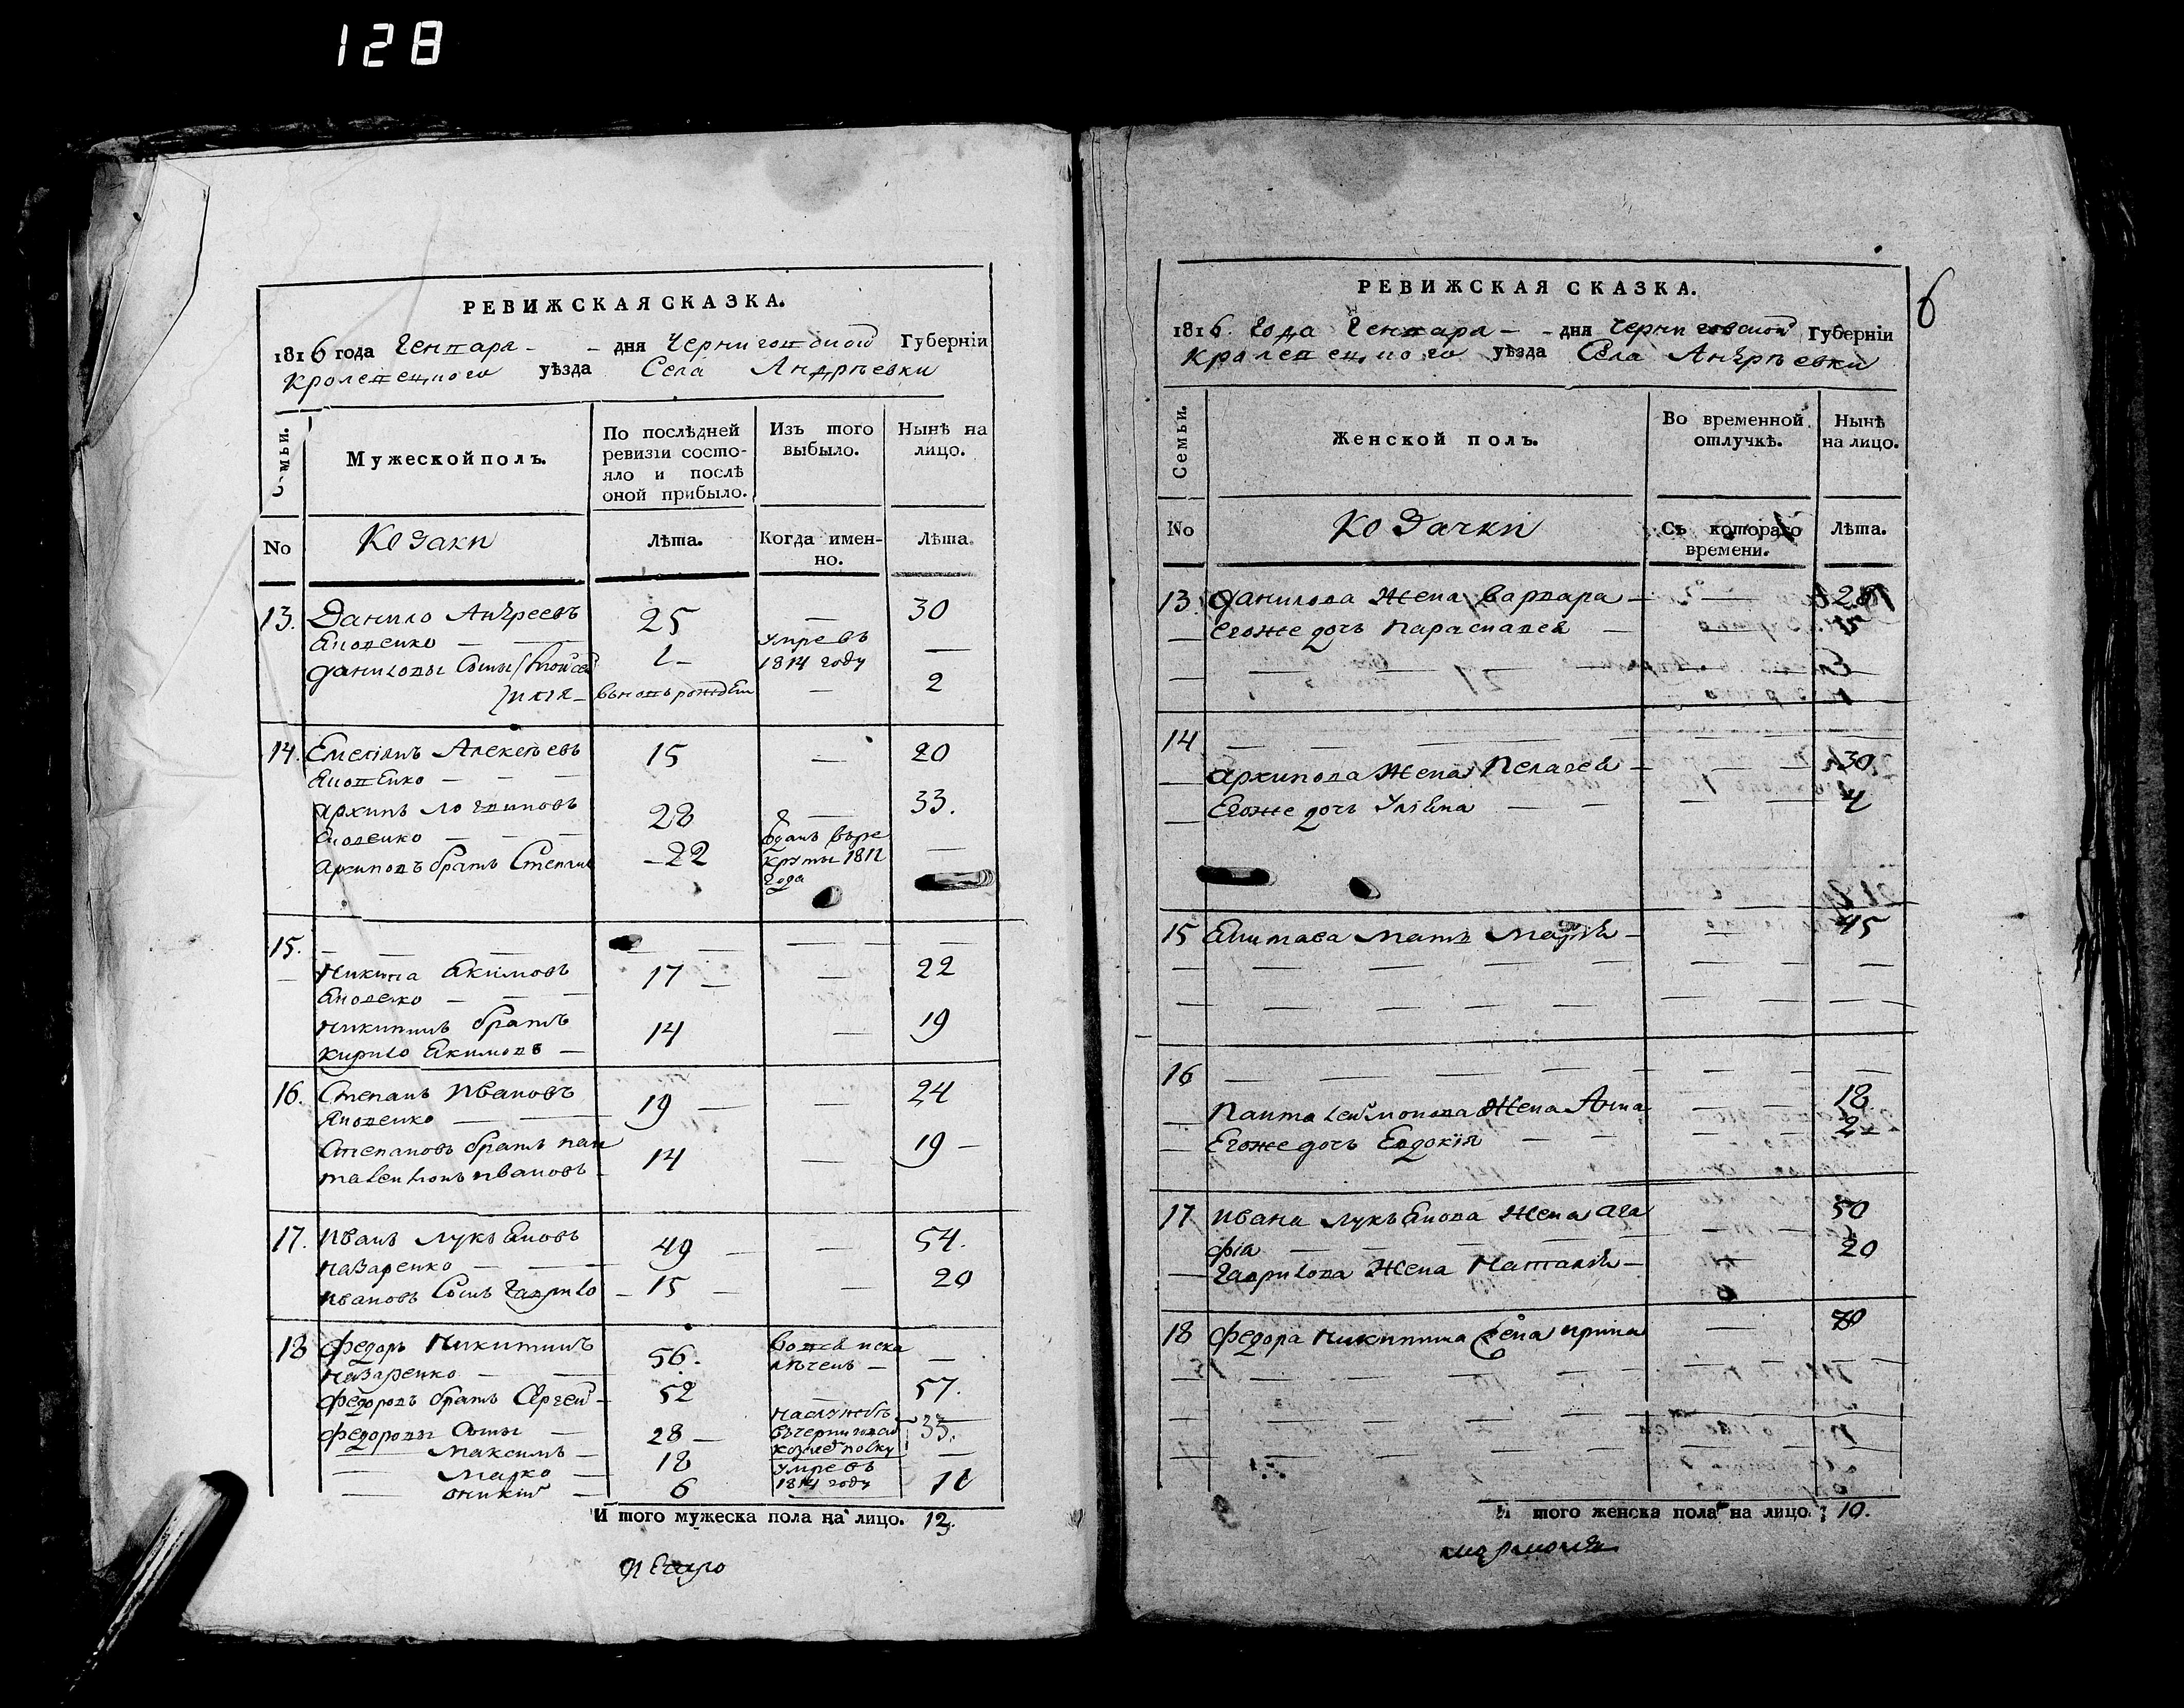 128
РЕВИЖСКАЯ СКАЗКА.
1816 года Генваря - - дня Черниговской Губерніи
Кролевецкого уѣзда Села Андрѣевки
Семьи.
Мужеской полъ.
По послѣдней ревизіи состояло и послѣ оной прибыло.
Изъ того выбыло.
Нынѣ на лицо.
No
Козаки
Лѣта.
Когда именно.
Лѣта.
13. Данило Андреевъ 25 — 30
Яковенко — умре въ
Даниловы Сыны Моисей 1 — 1814 году —
Илія — вьновь рожден — 2
14. Емеліянъ Алексѣевъ 15 — 20
Яковенко — — —
Архипъ Логвиновъ 28 — 33.
Яковенко — — — Отданъ въ ре
Архиповъ братъ Степанъ — 22 круты 1812 —
года
15. — — — — — —
Никита Якимовъ 17 — — 22
Яковенко — — —
Никитинъ братъ 14 — 19
Кирило Якимовъ —
16. Степанъ Ивановъ 19 — — 24
Яковенко —
Степановъ братъ Пан 14 — 19 —
талеимонъ Ивановъ
17. Иванъ Лукъяновъ 49 — — 54.
Назаренко — —
Ивановъ Сынъ Гаврило — 15 — — 20
18 Федоръ Никитинъ 56. —
Назаренко —
Федоровъ братъ Сергей — 52 — 57.
Федоровы Сыны — на службѣ
Максимъ — 28 — въ Черниговско 33.
козачьем полку
Марко — 18 умре въ —
1814 году
Оникій — 6 — 11
И того мужеска пола на лицо. 12.
РЕВИЖСКАЯ СКАЗКА.
6
1816. Года Генваря - - дня Черниговской Губерніи
Кролевецкого уѣзда Села Андрѣевки
Семьи.
Женской полъ.
Во временной отлучкѣ.
Нынѣ на лицо.
No
Козачки
Съ котораго времени.
Лѣта.
13 Данилова Жена Варвара — — 28
— Егоже дочь Параскавея — —
14 — — — — — —
— Архипова Жена Пелагея — — — 30
— Егоже дочь Уліяна — — — 4
15 Якимова мать Марія — — 45
16 — — — — — —
— Панталеимонова Жена Анна — — 18
— Егоже дочь Евдокія — — — 2
17 Ивана Лукъянова Жена Ага 50
фія — — — —
— Гаврилова Жена Наталія — — 20
18 Федора Никитина Жена Ирина — 70
И того женска пола на лицо: 10.